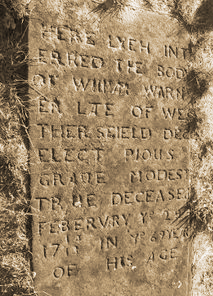 HERE LYEH INT
ERRED THE BODY
OF WILLIAM WARN
ER LTE OF WE
THER SFIELD DEC
ELECT PIOUS
GRAUE MODEST
TRUE DECEASED
FEBERVRY Ye 2
171 IN Ye 69 YEAR
OF HIS AGE